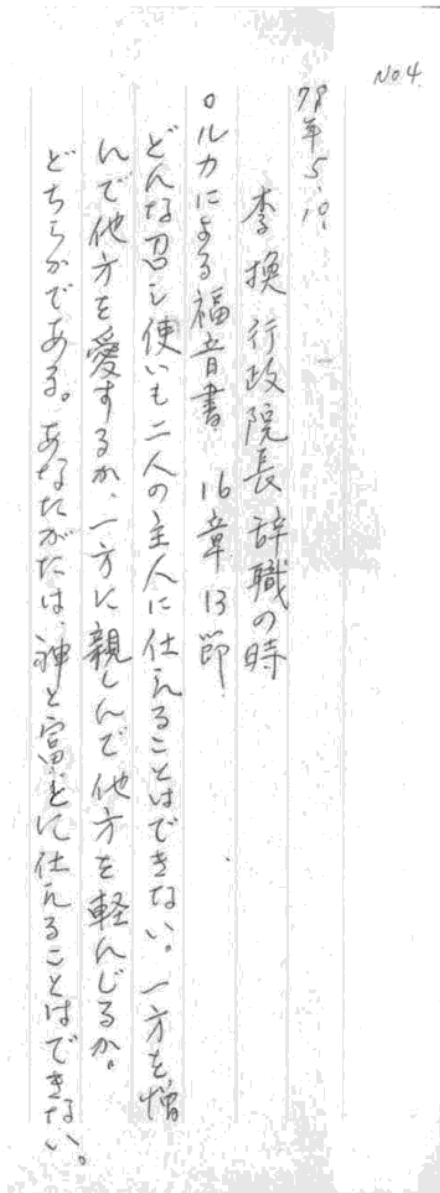 No.4
78年5.10.
李換行政院長辞職の時
○ルカによる福音書 16章13節
どんな召し使いも二人の主人に仕えることはできない。一方を憎
んで他方を愛するか、一方に親しんで他方を軽んじるか。
どちらかである。あなたがたは、神と富とに仕えることはできない。